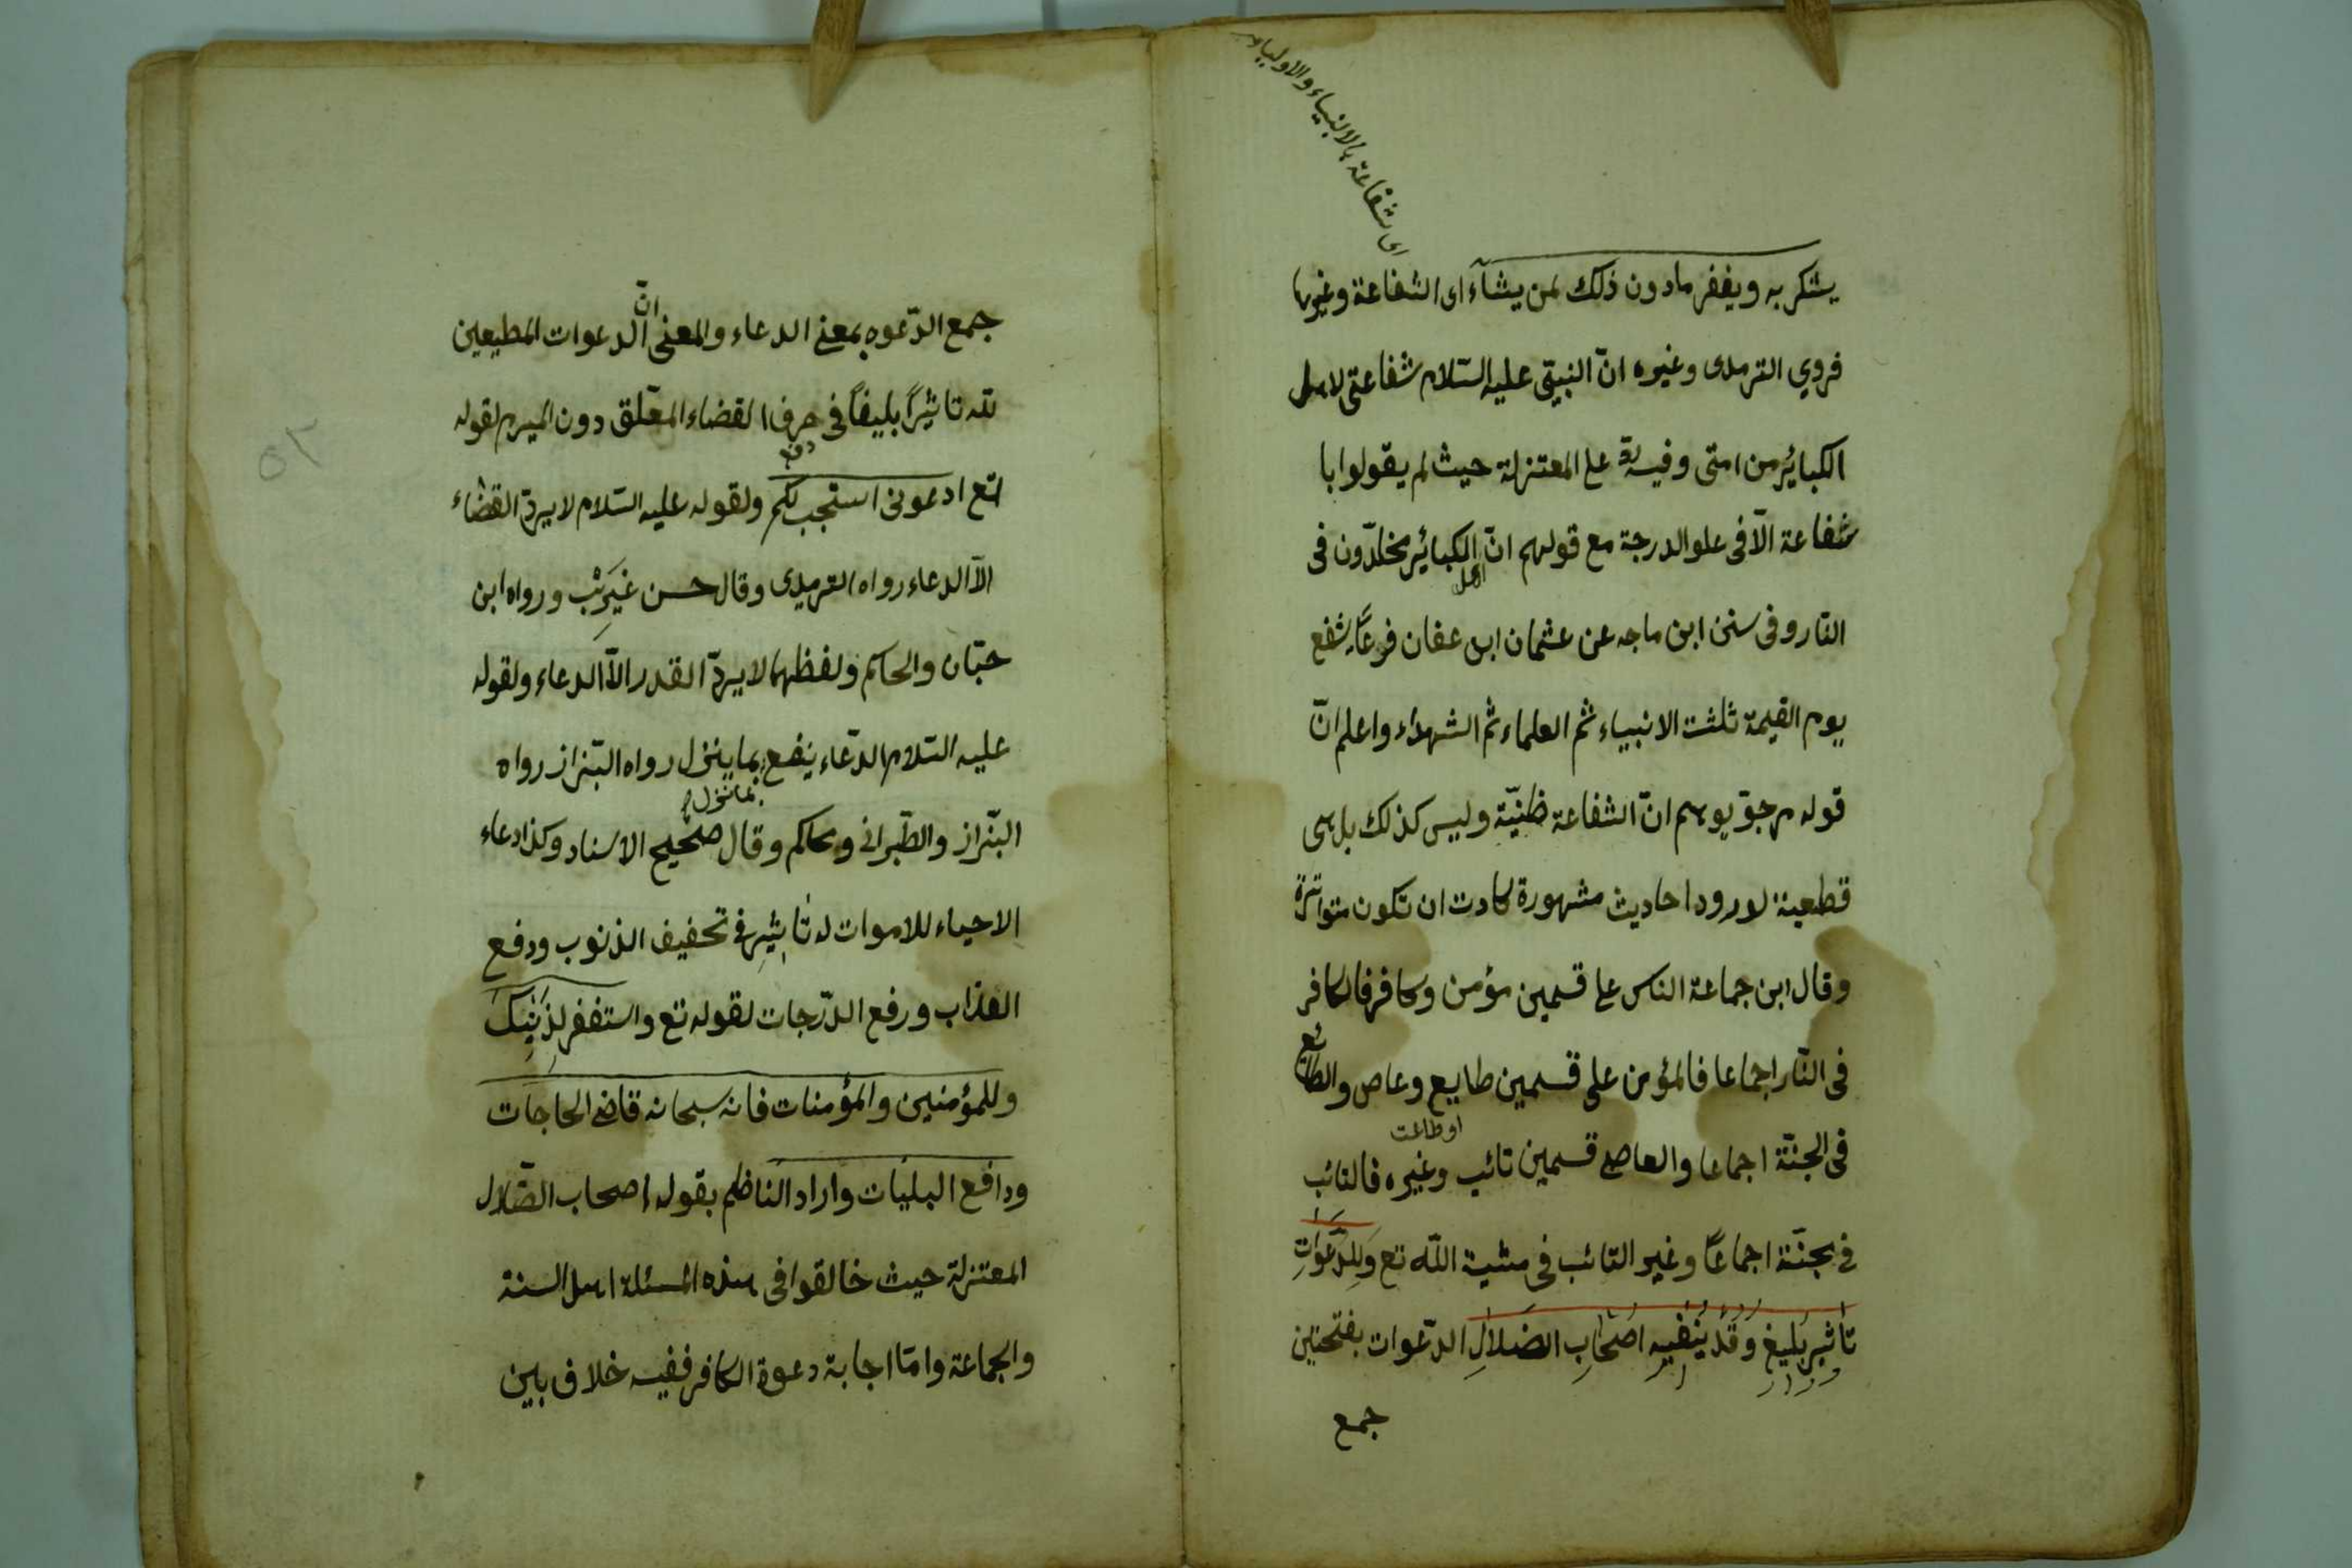 اى شفاعة بالانبياء والاولياء
يشرك به ويغفر مادون ذلك لمن يشآء اى الشفاعة وغيرها
فروي الترمدى وغيره انّ النبيّ عليه السّلام شفاعتى لاهل
الكبائر من امتى وفيه ردّ على المعتزلة حيث لم يقولوا با
شفاعة الّا فى علو الدرجة مع قولهم انّ اهل الكبائر مخلدّون فى
النار وفى سنن ابن ماجه عن عثمان ابن عفان فرعًا يشفع
يوم القيمة ثلثت الانبياء ثم العلماء ثم الشهداء واعلم انّ
قوله مرجوّ يوهم انّ الشفاعة ظنيّة وليس كذلك بل هى
قطعية لورود احاديث مشهورة كادت ان تكون متواترة
وقال ابن جماعة الناس على قسمين مؤمن وكافر فالكافر
فى النّار اجماعا فالمؤمن على قسمين طايع وعاص والطائع
فى الجنّة اجماعا والعاصى قسمين تائب وغيره فالتائب
او طاعت
فى جنّة اجماعًا وغير التائب فى مشية اللّه تع وَلِلدَّعَوَاتِ
تأثير بليغ وقد ينفيه اصحاب الضلالِ الدّعوات بفتحتين
جمع
جمع الدّعوه بمعنى الدعاء والمعنى انّ الدعوات المطيعين
لله تاثيرًا بليغًا فى صرف القضاء المعّلق دون المبرم لقوله
تع ادعونى استجب لكم ولقوله عليه السّلام لا يردّ القضاء
الّا الدعاء رواه الترمدى وقال حسن غَرِيْب ورواه ابن
حبّان والحاكم ولفظهما لا يردّ القدر الّا الدعاء ولقوله
عليه السّلام الدّعاء ينفع بما ينزل رواه البّزاز رواه
بما نزل
البّزاز والطّبرانى وحاكم وقال صحيح الاسناد وكذا دعاء
الاحياء للاموات له تأثير فى تحفيف الذنوب ودفع
العذاب ورفع الدّرجات لقوله تع واستغفر لِذَنْبِكَ
وللمؤمنين والمؤمنات فانه سبحانه قاضى الحاجات
ودافع البليات واراد النّاظم بقوله اصحاب الضّلال
المعتزلة حيث خالفوا فى هذه المسئلة اهل السنة
والجماعة وامّا اجابة دعوة الكافر ففيه خلاف بين
٥٢